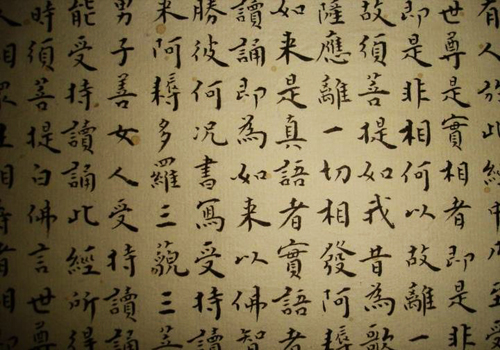 有人於此經中乃至受
世尊是實相者即是非
即是非相何以故離一
故須菩提如我昔為歌
薩應離一切相發阿耨
如来是真語者實語者
讀誦即為如来以佛智
勝彼何況書寫受持讀
来阿耨多羅三藐三菩
男子善女人受持讀誦
能受持讀誦此經所得
時須菩提白佛言世尊
人相眾生相壽者相